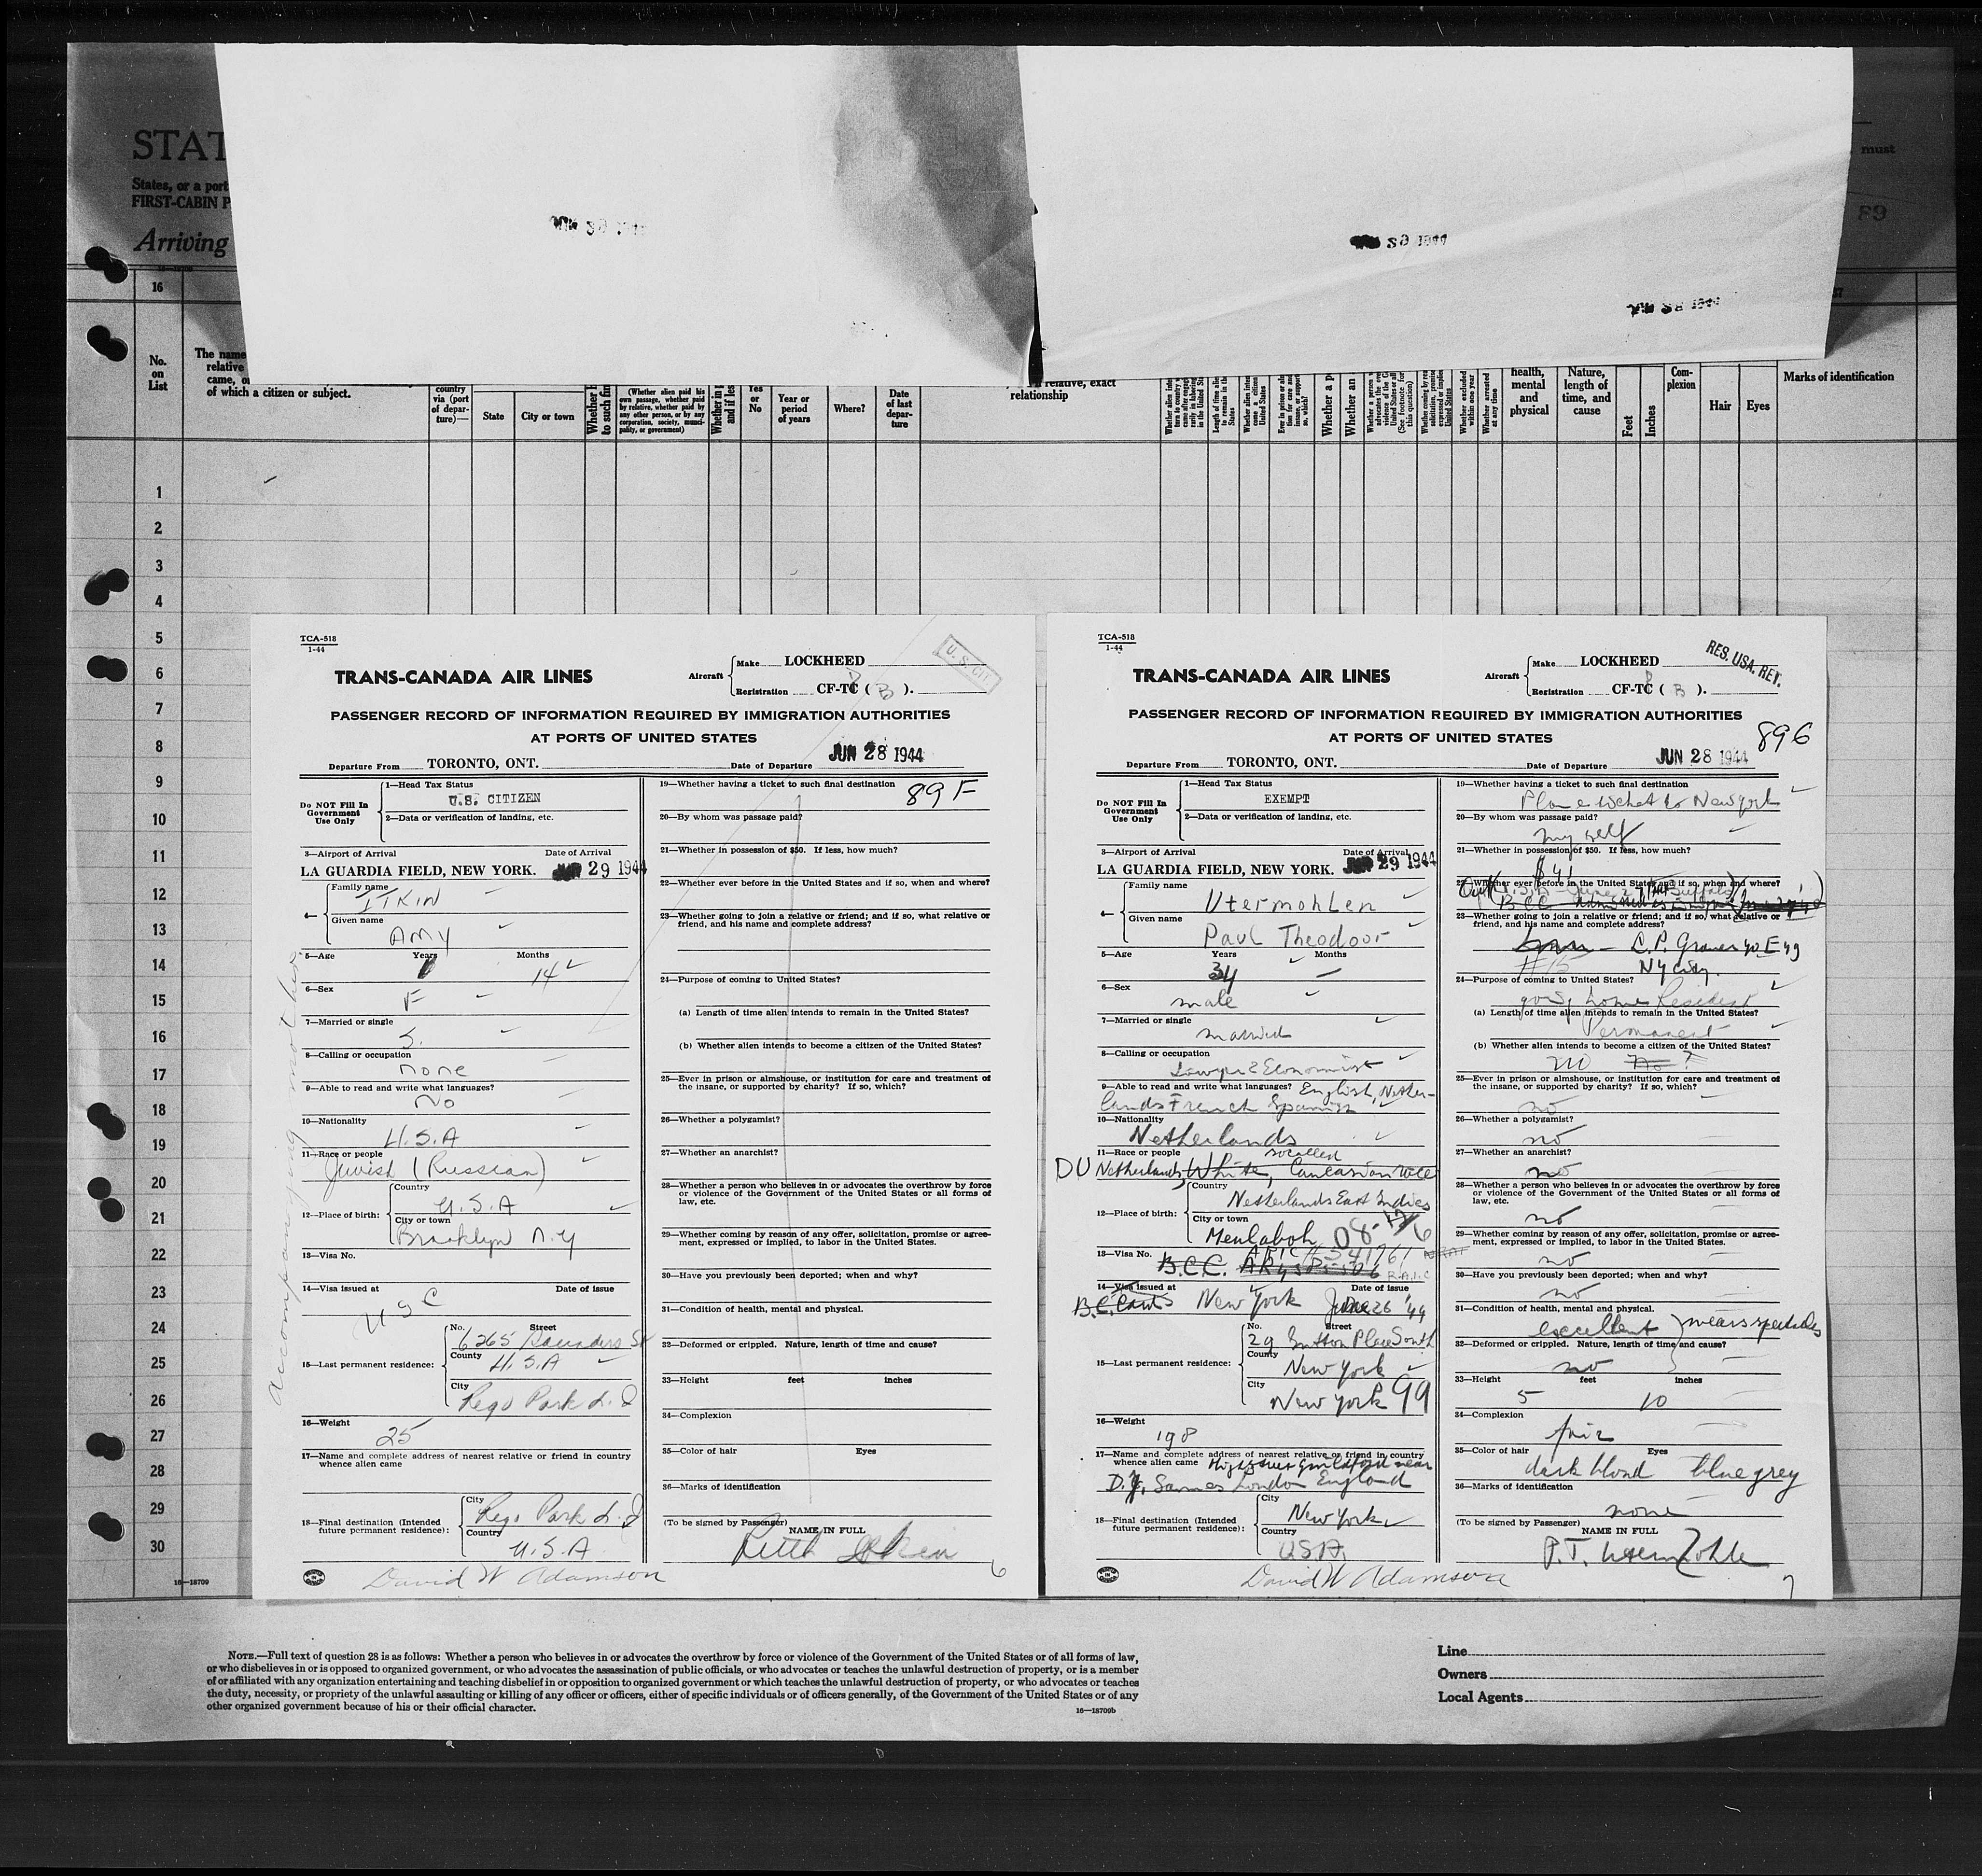 STAT
States, or a port
FIRST-CABIN P
Arriving
must
89
JUN 29 1944
16
No.
on
List
The name
relative
came, o
of which a citizen or subject.
country
via (port
of depar-
ture)—
State
City or town
(Whether alien paid his
own passage, whether paid
by relative, whether paid by
any other person, or by any
corporation, society, munici-
pality, or government)
Yes
or
No
Year or
period
of years
Where?
Date
of last
depar-
ture
relative, exact
relationship
health,
mental
and
physical
Nature,
length of
time, and
cause
Feet
Inches
Com-
plexion
Hair
Eyes
Marks of identification
1
2
3
4
5
6
7
8
9
10
11
12
13
14
15
16
17
18
19
20
21
22
23
24
25
26
27
28
29
30
16—18709
TCA-518
1-44
TRANS-CANADA AIR LINES
Aircraft
Make LOCKHEED
Registration CF-TC ( B ).
U. S. CIT.
PASSENGER RECORD OF INFORMATION REQUIRED BY IMMIGRATION AUTHORITIES
AT PORTS OF UNITED STATES
Departure From TORONTO, ONT. Date of Departure JUN 28 1944
Do NOT Fill In
Government
Use Only
1—Head Tax Status
U.S. CITIZEN
2—Data or verification of landing, etc.
3—Airport of Arrival Date of Arrival
LA GUARDIA FIELD, NEW YORK. JUN 29 1944
4—
Family name
ITKIN
Given name
AMY
5—Age Years Months
14
6—Sex
F
7—Married or single
S.
8—Calling or occupation
none
9—Able to read and write what languages?
No
10—Nationality
U.S.A
11—Race or people
Jewish (Russian)
12—Place of birth:
Country
U.S.A
City or town
Brooklyn N.Y
13—Visa No.
14—Visa issued at Date of issue
USC
15—Last permanent residence:
No. Street
6265 Saunders St
County
U.S.A
City
Rego Park L.I
16—Weight
25
17—Name and complete address of nearest relative or friend in country
whence alien came
18—Final destination (Intended
future permanent residence):
City
Rego Park L.I
Country
U.S.A
David W Adamson
accompanying mother
19—Whether having a ticket to such final destination
89 F
20—By whom was passage paid?
21—Whether in possession of $50. If less, how much?
22—Whether ever before in the United States and if so, when and where?
23—Whether going to join a relative or friend; and if so, what relative or
friend, and his name and complete address?
24—Purpose of coming to United States?
(a) Length of time alien intends to remain in the United States?
(b) Whether alien intends to become a citizen of the United States?
25—Ever in prison or almshouse, or institution for care and treatment of
the insane, or supported by charity? If so, which?
26—Whether a polygamist?
27—Whether an anarchist?
28—Whether a person who believes in or advocates the overthrow by force
or violence of the Government of the United States or all forms of
law, etc.
29—Whether coming by reason of any offer, solicitation, promise or agree-
ment, expressed or implied, to labor in the United States.
30—Have you previously been deported; when and why?
31—Condition of health, mental and physical.
32—Deformed or crippled. Nature, length of time and cause?
33—Height feet inches
34—Complexion
35—Color of hair Eyes
36—Marks of identification
(To be signed by Passenger)
NAME IN FULL
Ruth Itkin
6
TCA-518
1-44
TRANS-CANADA AIR LINES
Aircraft
Make LOCKHEED
Registration CF-TC ( B ).
RES. USA. RET.
PASSENGER RECORD OF INFORMATION REQUIRED BY IMMIGRATION AUTHORITIES
AT PORTS OF UNITED STATES
896
Departure From TORONTO, ONT. Date of Departure JUN 28 1944
Do NOT Fill In
Government
Use Only
1—Head Tax Status
EXEMPT
2—Data or verification of landing, etc.
3—Airport of Arrival Date of Arrival
LA GUARDIA FIELD, NEW YORK. JUN 29 1944
4—
Family name
Utermohlen
Given name
Paul Theodoor
5—Age Years Months
34 —
6—Sex
male
7—Married or single
married
8—Calling or occupation
Lawyer & Economist
9—Able to read and write what languages? English, Nether-
lands French Spanish
10—Nationality
Netherlands
11—Race or people
so called
DU Netherlands, White, Caucasian race
12—Place of birth:
Country
Netherlands East Indies
City or town
Meulaboh
13—Visa No.
B.C.C.
14—Visa issued at Date of issue
B.C. Card New York June 26 '44
15—Last permanent residence:
No. Street
29 Sutton Place South
County
New York
City
New York 99
16—Weight
198
17—Name and complete address of nearest relative or friend in country
whence alien came High Street Guildford near
D.J. Sames London England
18—Final destination (Intended
future permanent residence):
City
New York
Country
USA
David W Adamson
19—Whether having a ticket to such final destination
Plane ticket to New York
20—By whom was passage paid?
my self
21—Whether in possession of $50. If less, how much?
$41
22—Whether ever before in the United States and if so, when and where?
23—Whether going to join a relative or friend; and if so, what relative or
friend, and his name and complete address?
40 E 49
#15 NY City.
24—Purpose of coming to United States?
going home Resident
(a) Length of time alien intends to remain in the United States?
Permanent
(b) Whether alien intends to become a citizen of the United States?
no No ?
25—Ever in prison or almshouse, or institution for care and treatment of
the insane, or supported by charity? If so, which?
no
26—Whether a polygamist?
no
27—Whether an anarchist?
no
28—Whether a person who believes in or advocates the overthrow by force
or violence of the Government of the United States or all forms of
law, etc.
no
29—Whether coming by reason of any offer, solicitation, promise or agree-
ment, expressed or implied, to labor in the United States.
no
30—Have you previously been deported; when and why?
no
31—Condition of health, mental and physical.
excellent } wears spectacles
32—Deformed or crippled. Nature, length of time and cause?
no
33—Height feet inches
5 10
34—Complexion
fair
35—Color of hair Eyes
dark blond blue grey
36—Marks of identification
none
(To be signed by Passenger)
NAME IN FULL
P.T. Utermohlen
7
NOTE.—Full text of question 28 is as follows: Whether a person who believes in or advocates the overthrow by force or violence of the Government of the United States or of all forms of law,
or who disbelieves in or is opposed to organized government, or who advocates the assassination of public officials, or who advocates or teaches the unlawful destruction of property, or is a member
of or affiliated with any organization entertaining and teaching disbelief in or opposition to organized government or which teaches the unlawful destruction of property, or who advocates or teaches
the duty, necessity, or propriety of the unlawful assaulting or killing of any officer or officers, either of specific individuals or of officers generally, of the Government of the United States or of any
other organized government because of his or their official character.
16—18709b
Line
Owners
Local Agents